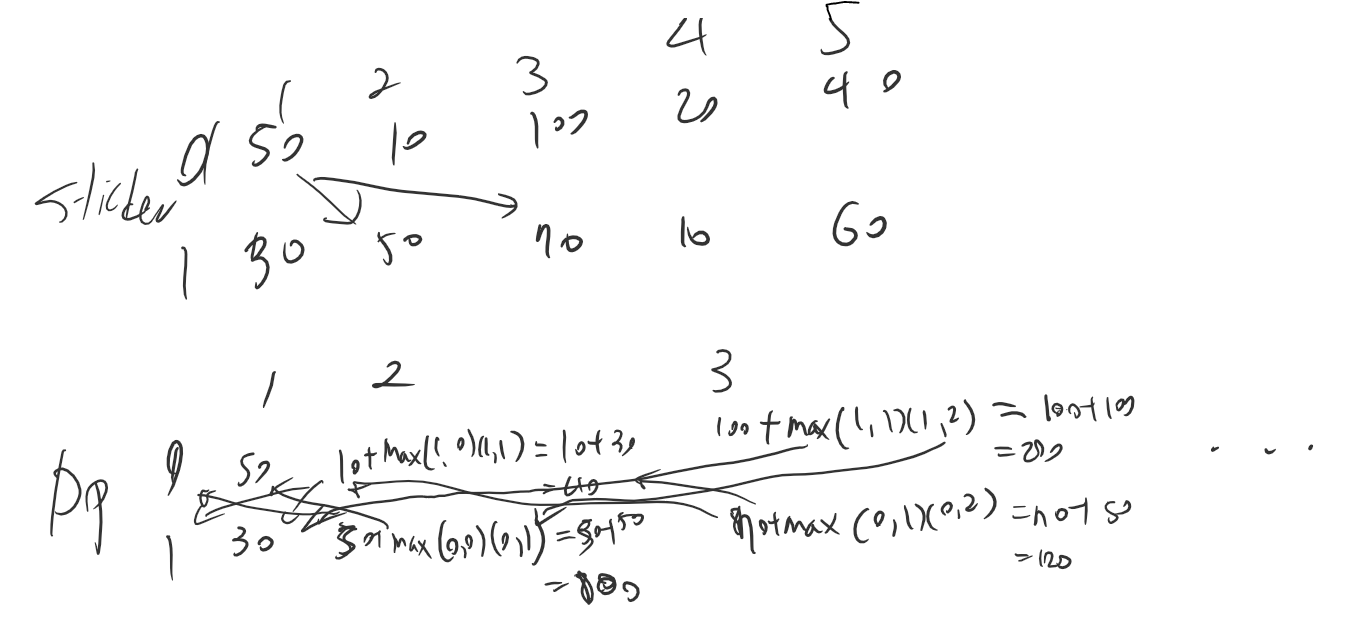 1 2 3 4 5
sticker 0 50 10 100 20 40
1 30 50 70 10 60
1 2 3
0 50 10+max(1,0)(1,1) = 10+30 = 40 100+max(1,1)(1,2) = 100+100 = 200 . . .
Dp
1 30 50+max(0,0)(0,1) = 50+50 = 100 70+max(0,1)(0,2) = 70+50 = 120